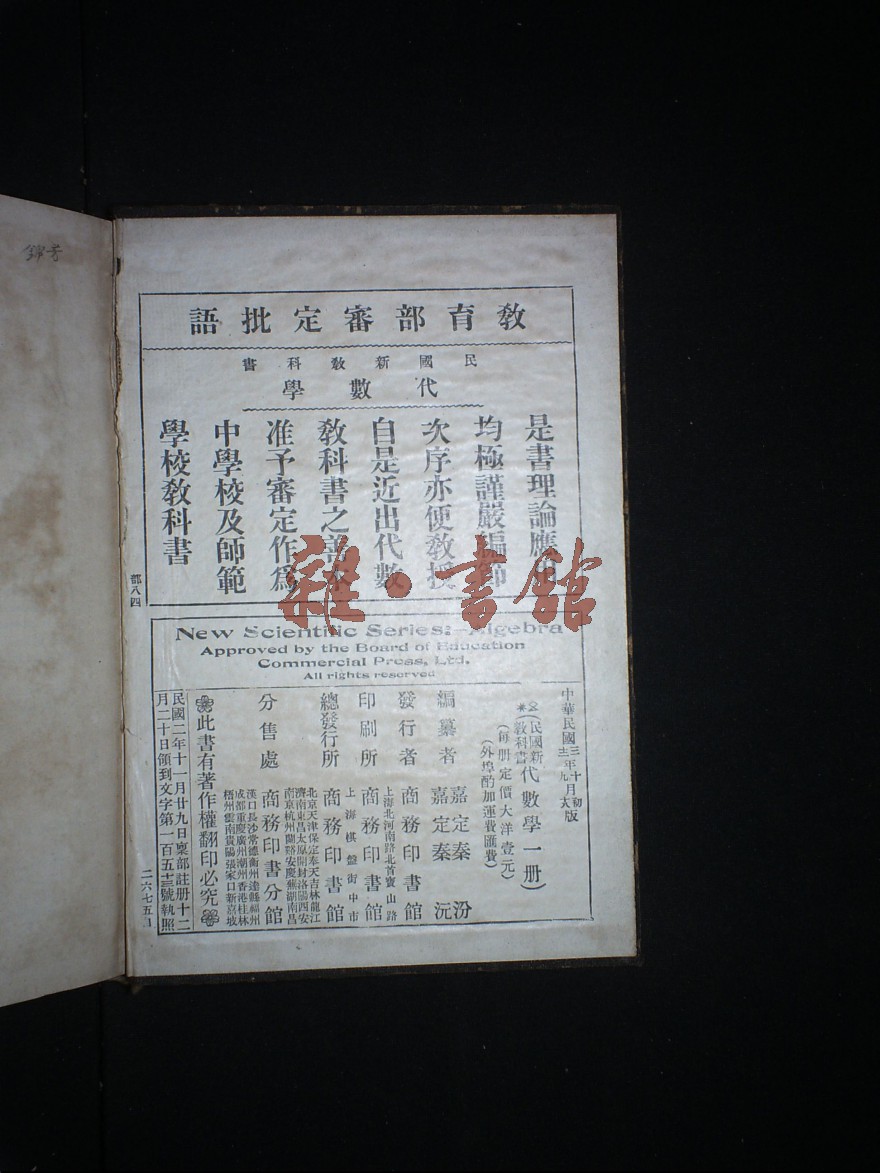 錦芳
教育部審定批語
民國新教科書
代數學
是書理論應用
均極謹嚴編節
次序亦便教授
自是近出代數
教科書之善本
准予審定作爲
中學校及師範
學校教科書
部八四
雜·書館
New Scientific Series:—Algebra
Approved by the Board of Education
Commercial Press, Ltd.
All rights reserved
中華民國
年十月初版
(民國新教科書代數學一册)
(每册定價大洋壹元)
(外埠酌加運費匯費)
編纂者 嘉定秦汾 嘉定秦沅
發行者 商務印書館
上海北河南路北首寶山路
印刷所 商務印書館
上海棋盤街中市
總發行所 商務印書館
北京天津保定奉天吉林龍江
濟南東昌太原開封洛陽西安
南京杭州蘭谿安慶蕪湖南昌
分售處 商務印書分館
漢口長沙常德衡州達縣福州
成都重慶廣州潮州香港桂林
梧州雲南貴陽張家口新嘉坡
此書有著作權翻印必究
民國二年十一月廿九日稟部註册十二
月二十日領到文字第一百五十三號執照
二六七五